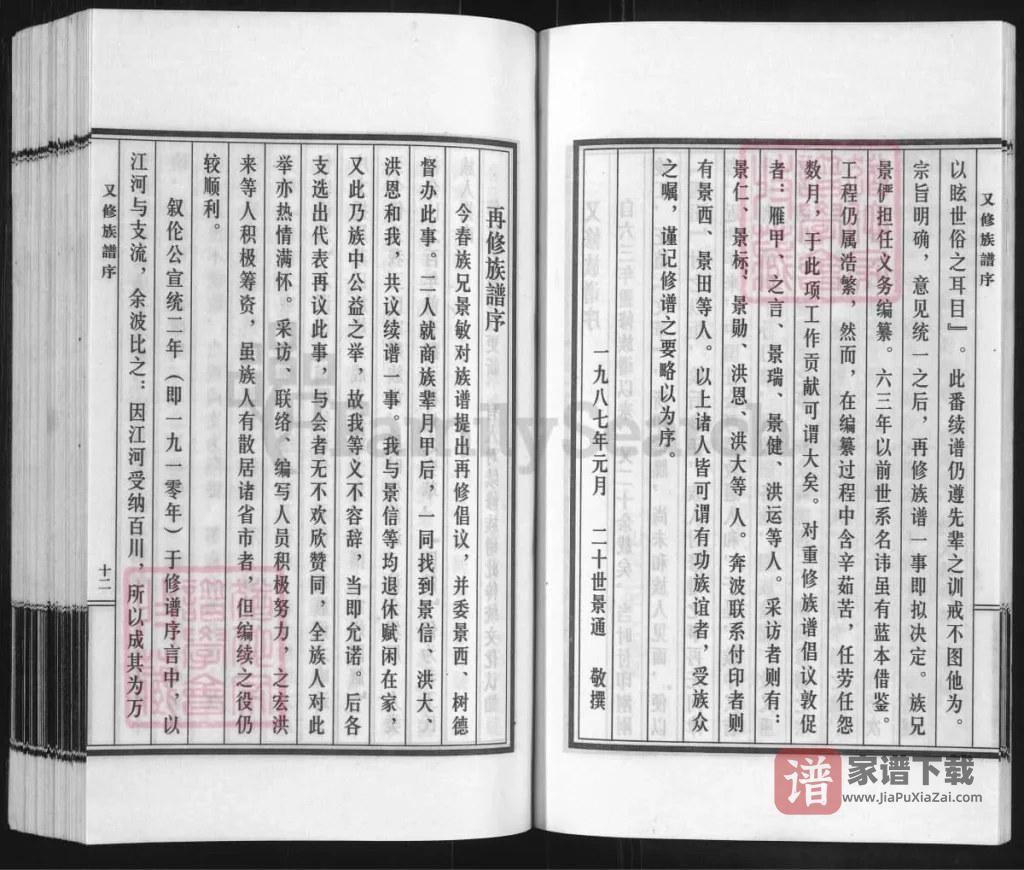 又修族譜序
以眩世俗之耳目』。此番续谱仍遵先辈之训戒不图他为。
宗旨明确，意见统一之后，再修族谱一事即拟决定。族兄
景俨担任义务编纂。六三年以前世系名讳虽有蓝本借鉴。
工程仍属浩繁，然而，在编纂过程中含辛茹苦，任劳任怨
数月，于此项工作贡献可谓大矣。对重修族谱倡议敦促
者：雁甲、之言、景瑞、景健、洪运等人。采访者则有：
景仁、景标、景勋、洪恩、洪大等人。奔波联系付印者则
有景西、景田等人。以上诸人皆可谓有功族谊者，受族众
之嘱，谨记修谱之要略以为序。
一九八七年元月 二十世景通 敬撰
再修族譜序
今春族兄景敏对族谱提出再修倡议，并委景西、树德
督办此事。三人就商族辈月甲后，一同找到景信、洪大、
洪恩和我，共议续谱一事。我与景信等均退休赋闲在家，
又此乃族中公益之举，故我等义不容辞，当即允诺。后各
支选出代表再议此事，与会者无不欢欣赞同，全族人对此
举亦热情满怀。采访、联络、编写人员积极努力，之宏洪
来等人积极筹资，虽族人有散居诸省市者，但编续之役仍
较顺利。
叙伦公宣统二年（即一九一零年）于修谱序言中，以
江河与支流，余波比之：因江河受纳百川，所以成其为万
又修族譜序
十二
FamilySearch
谱
家谱下载
www.JiaPuXiaZai.com